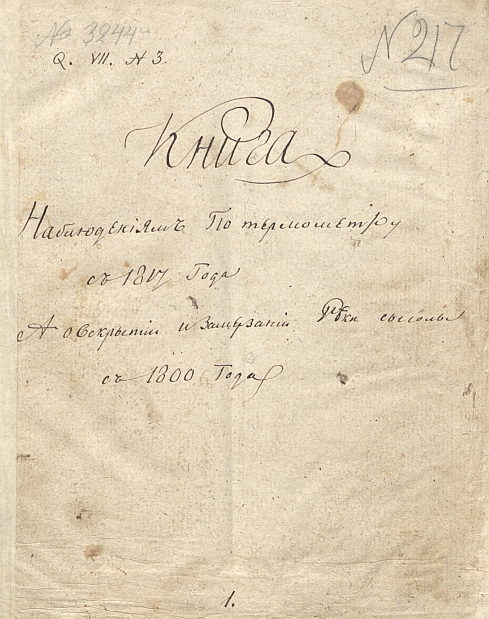 № 3244
Q. VII. N 3.
N 217
Книга
Наблюденіямъ По термометру
съ 1817 Года
А о Вскрытіи и Замерзаніи Рѣки сысолы
съ 1800 Года
1.